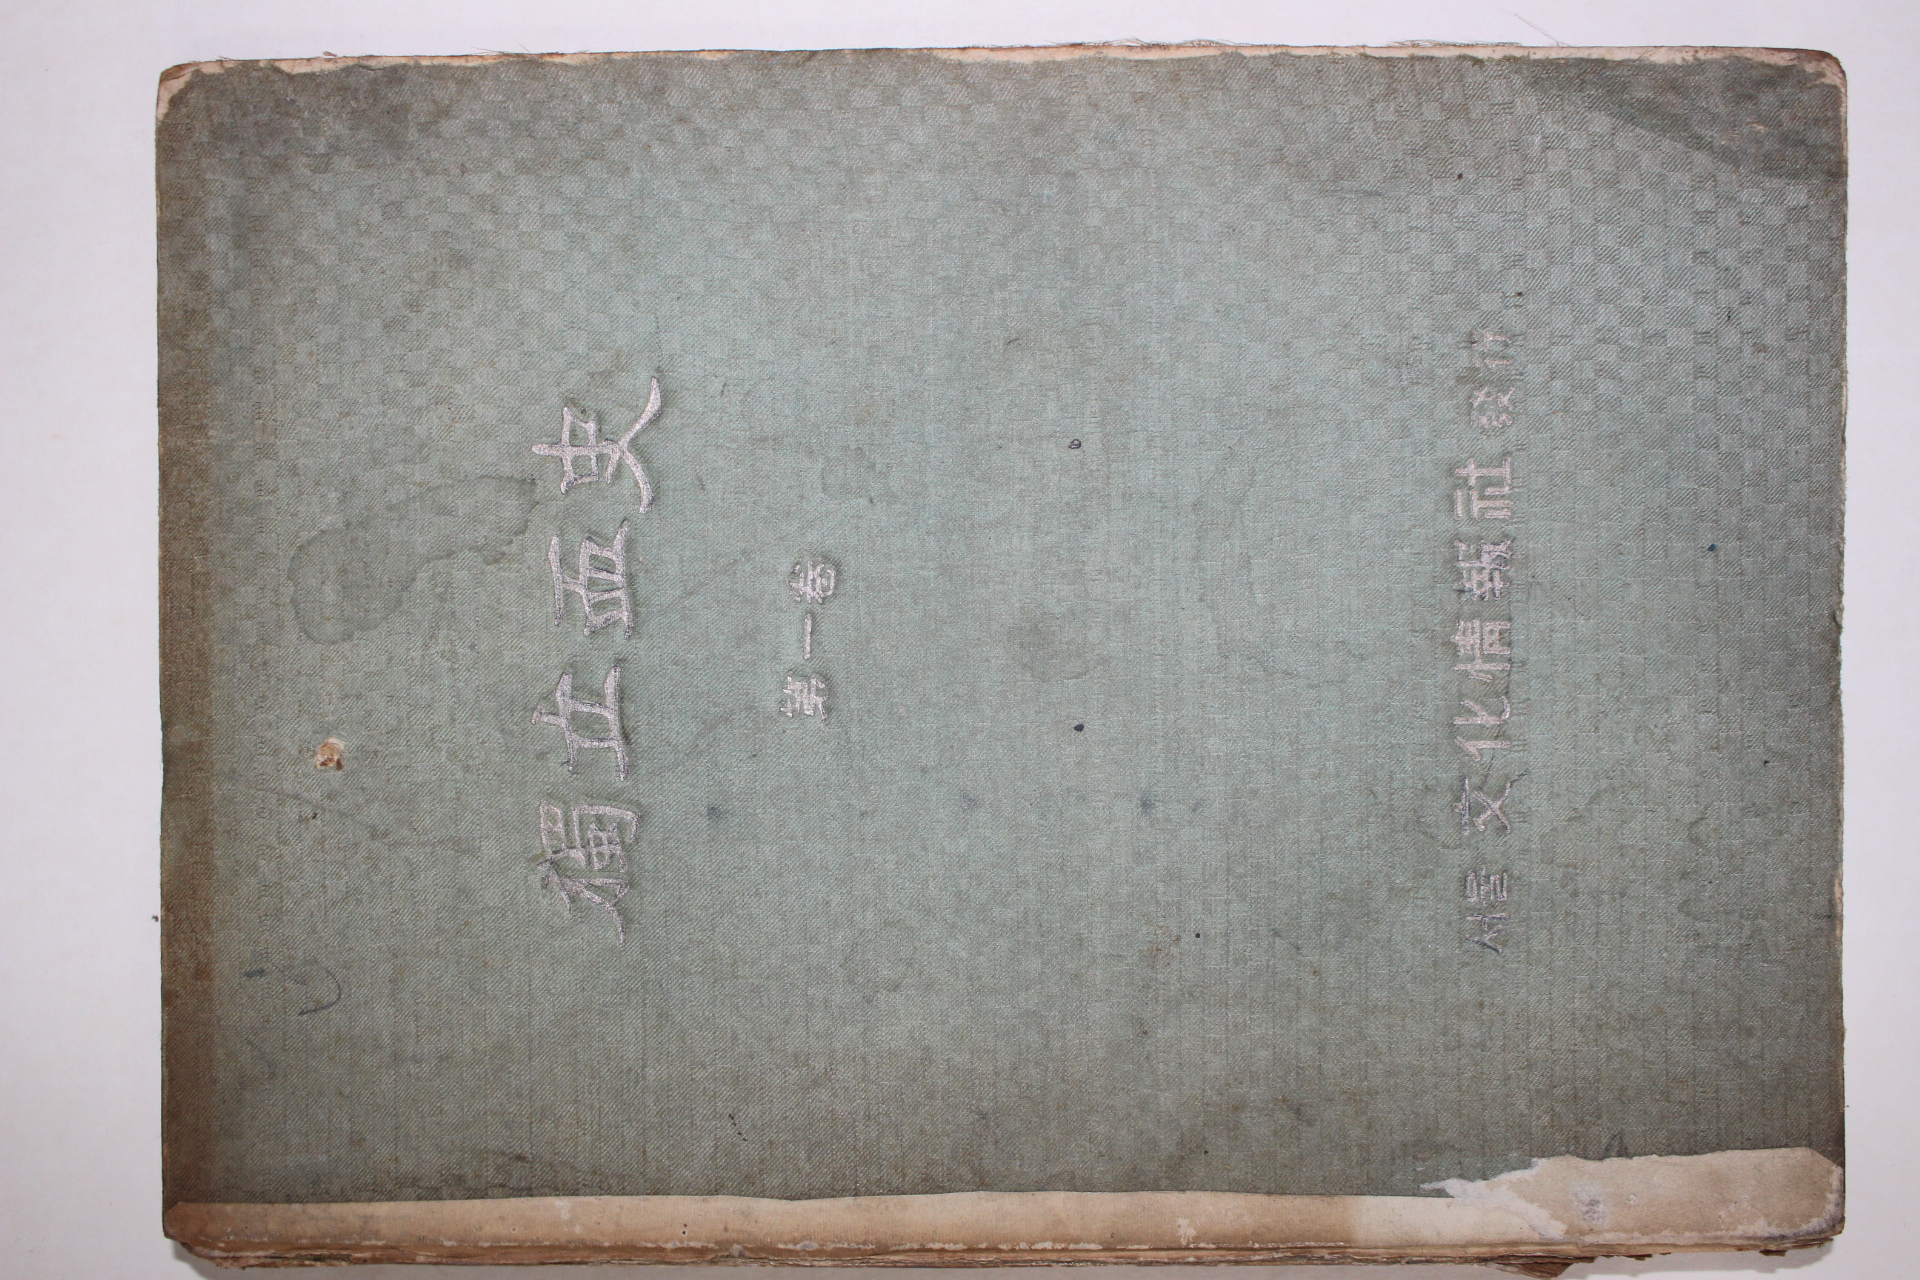 獨立血史
第一卷
서울 文化情報社 發行